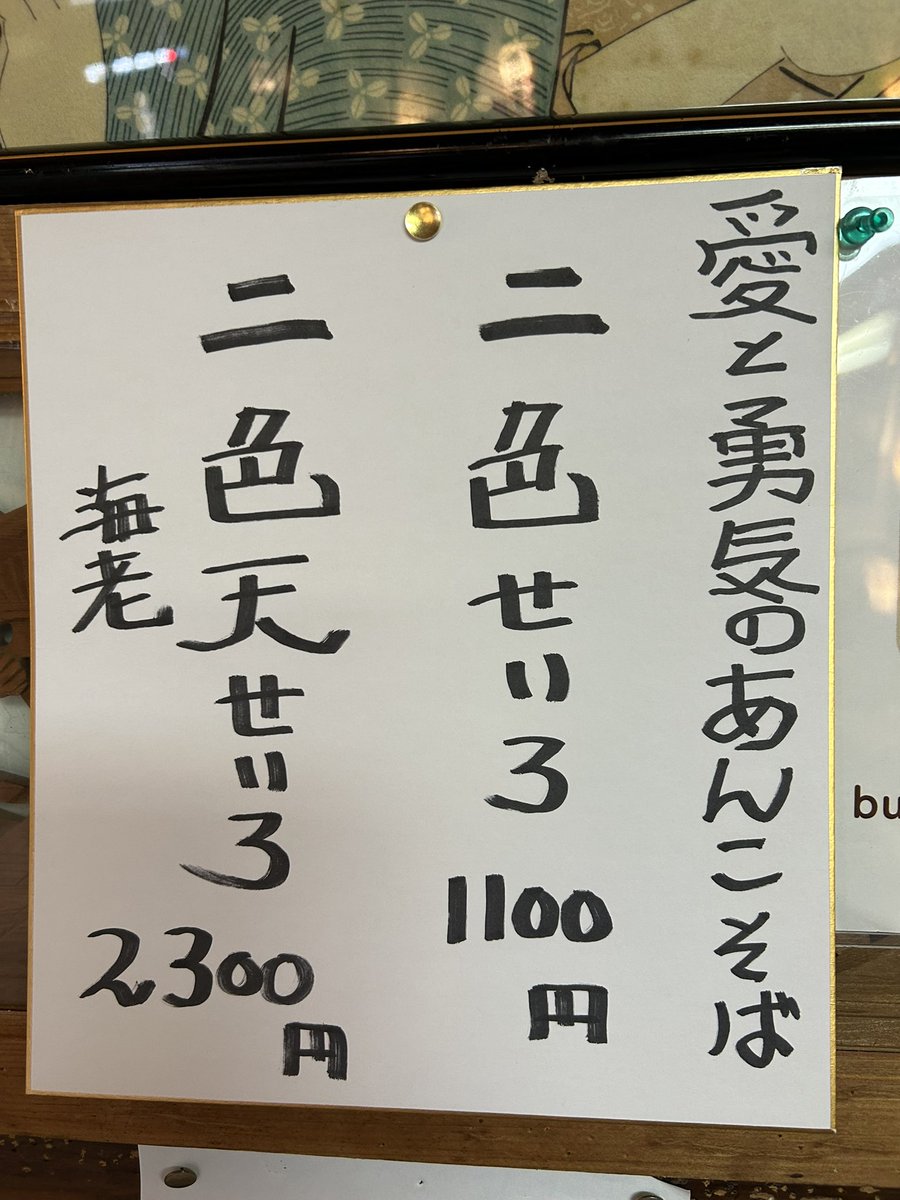 愛と勇気のあんこそば
二色せいろ
1100
円
二色天せいろ
海老
2,300
円
bu